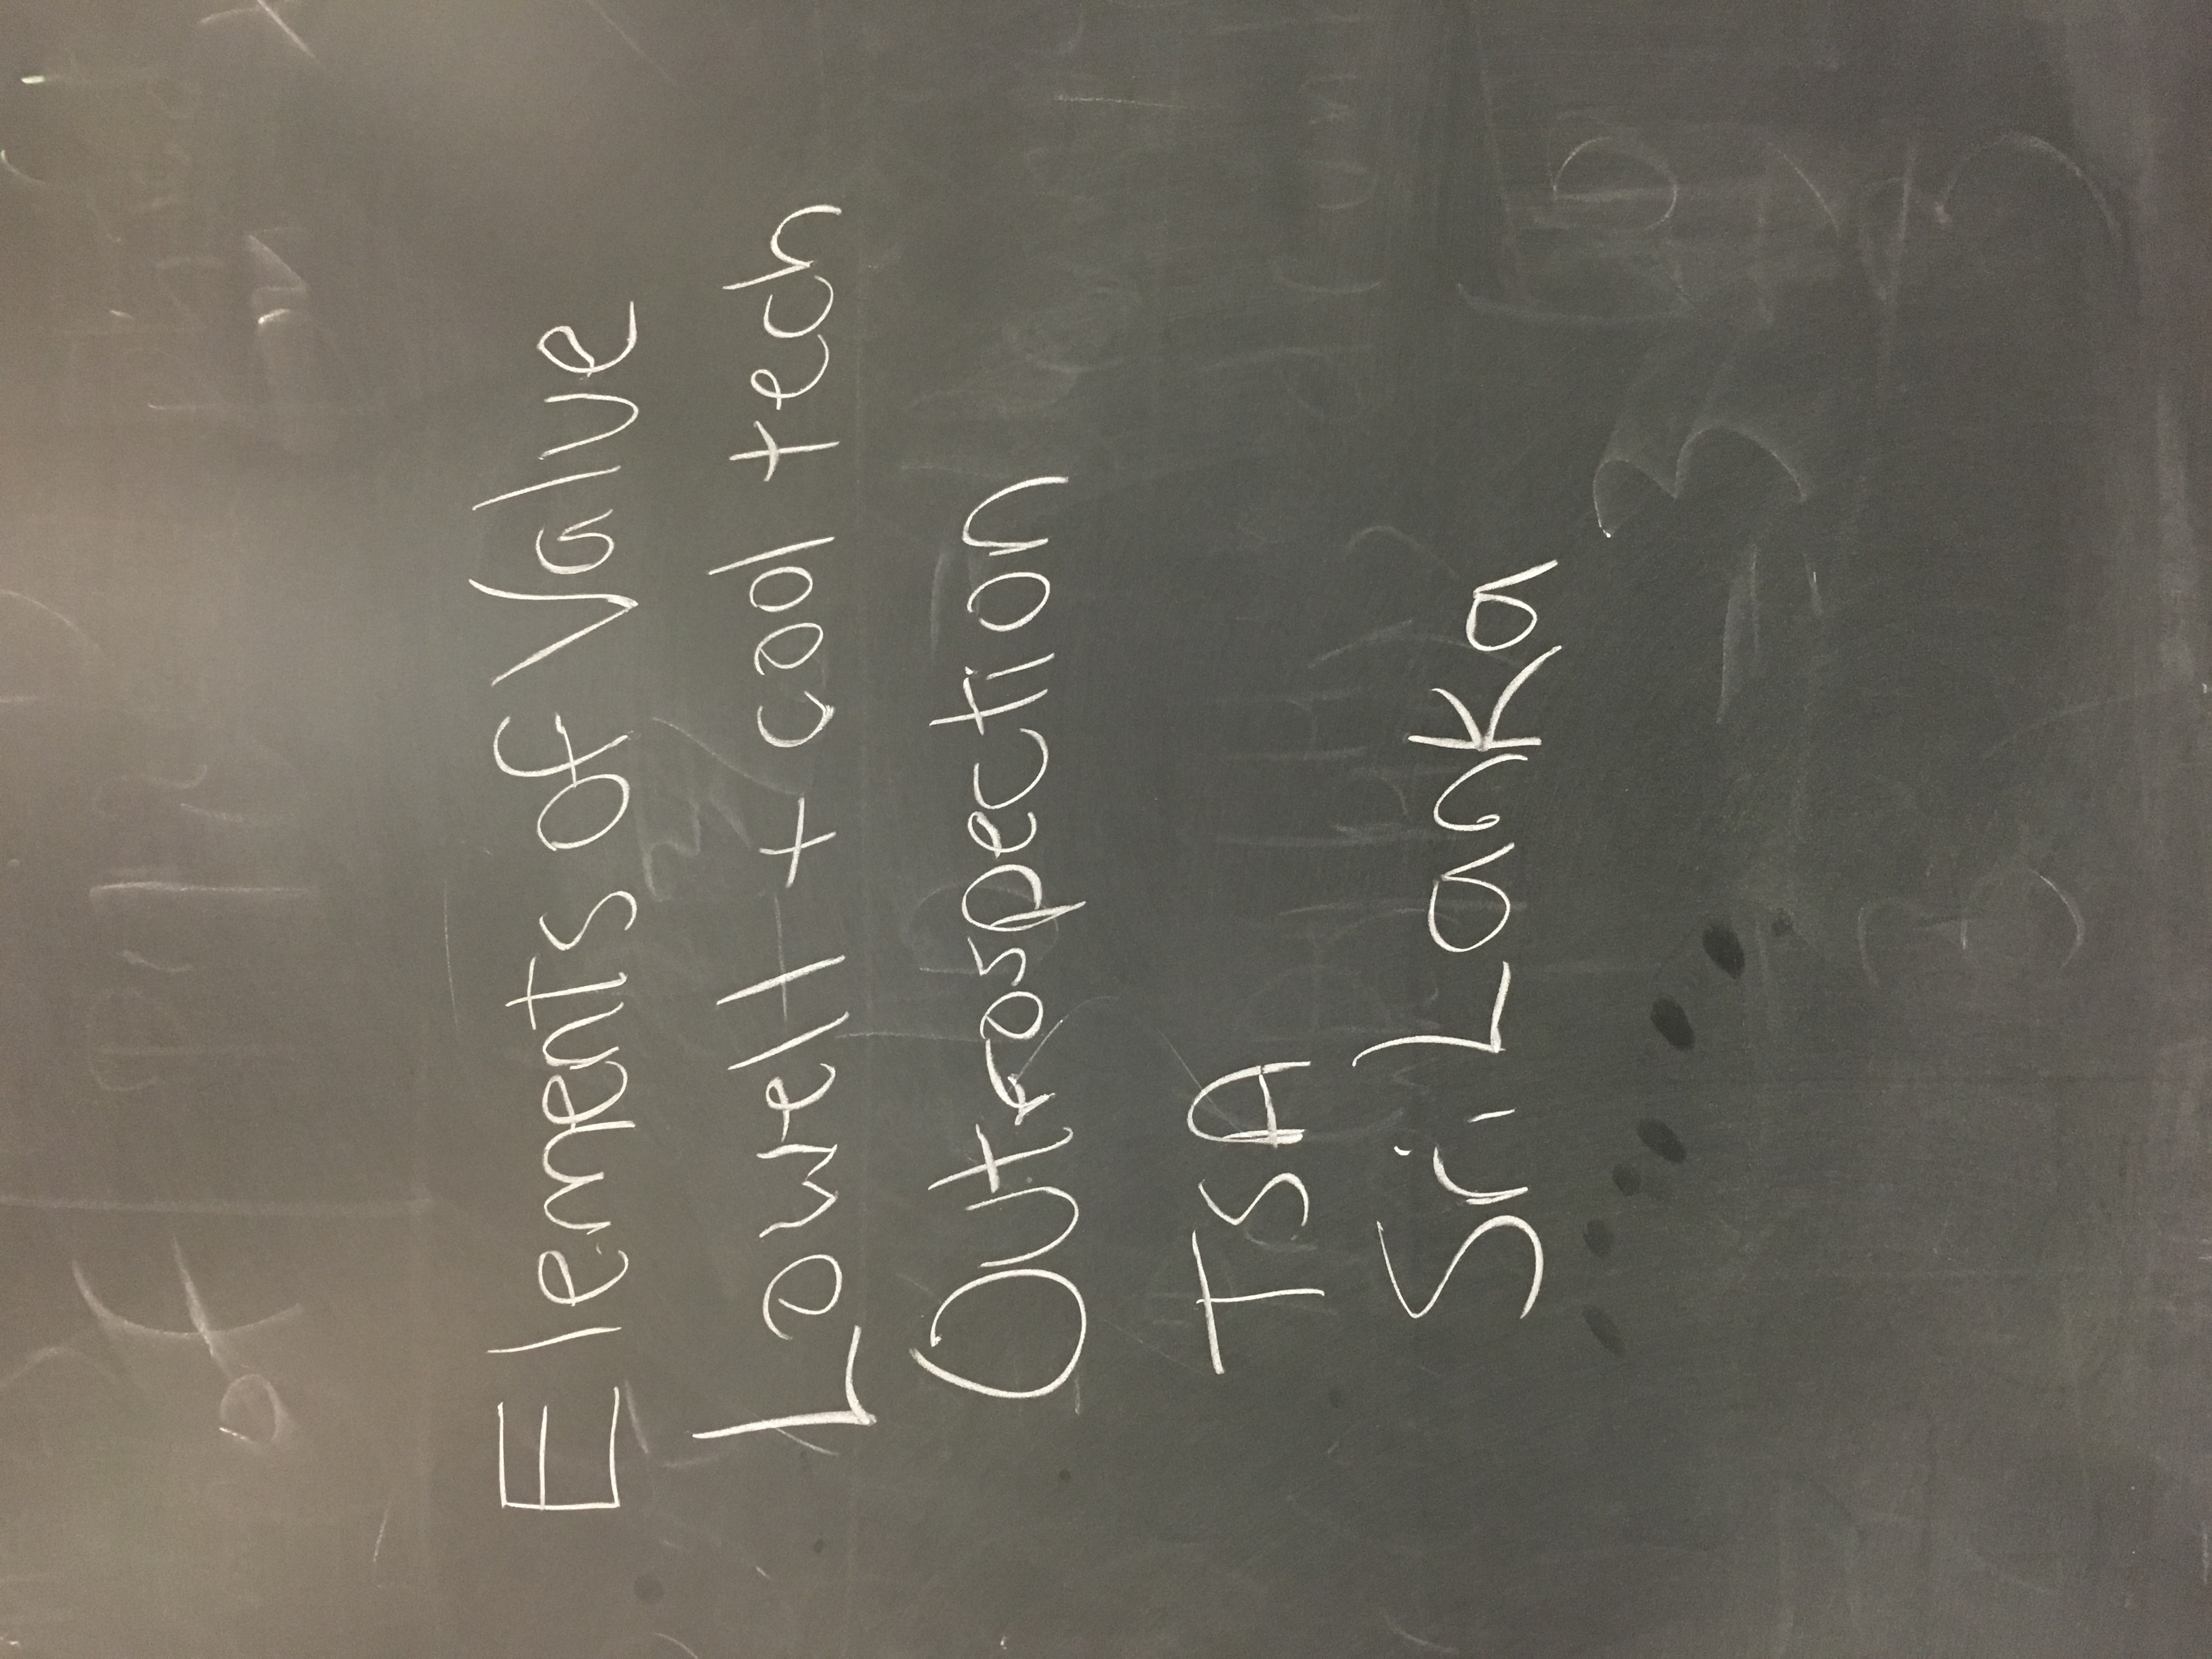 of
Elements of Value
Lowell + cool tech
Outrospection
TSA
Sri Lanka
3